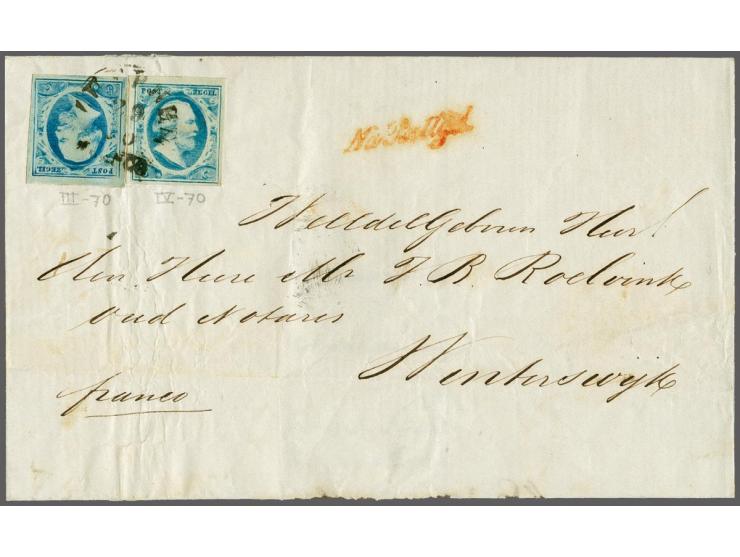 POST ZEGEL
POST ZEGEL
Na Posttijd
III-70 IV-70
WelEdelGeboren Heer
Den Heere Mr J. B. Roelvink
oud Notaris
Winterswijk
franco